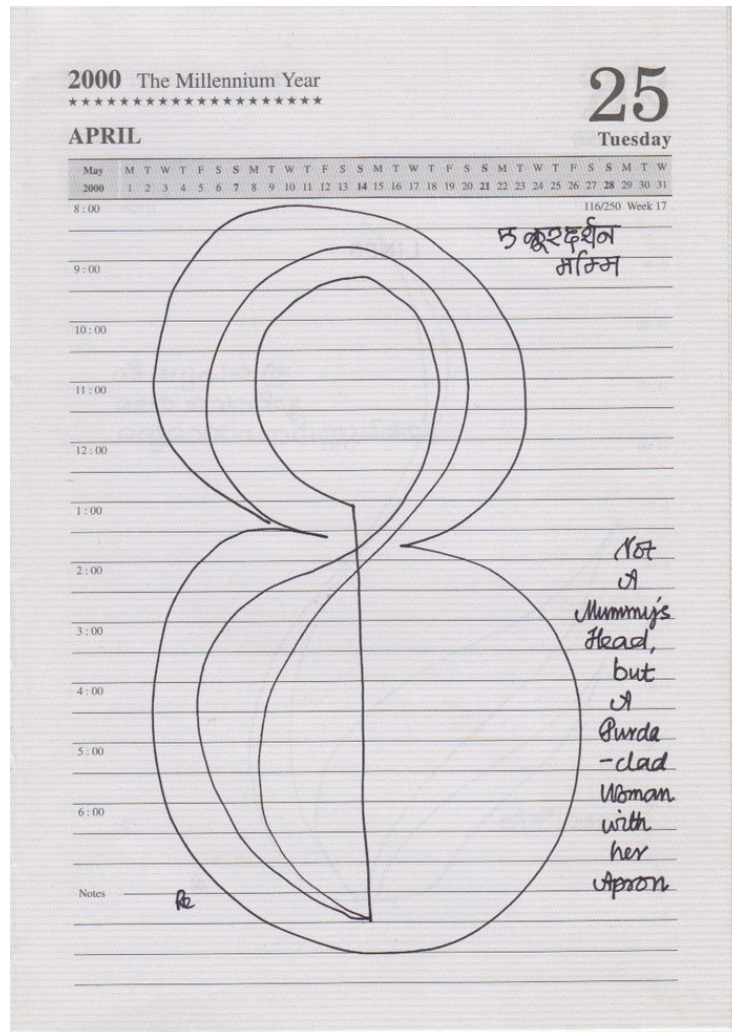 2000 The Millennium Year
★★★★★★★★★★★★★★★★★★★★
APRIL
25
Tuesday
May M T W T F S S M T W T F S S M T W T F S S M T W T F S S M T W
2000 1 2 3 4 5 6 7 8 9 10 11 12 13 14 15 16 17 18 19 20 21 22 23 24 25 26 27 28 29 30 31
116/250 Week 17
8:00
9:00
10:00
11:00
12:00
1:00
2:00
3:00
4:00
5:00
6:00
Notes
मम्मि
Not
A
Mummy's
Head,
but
A
Purda
-clad
Woman
with
her
Apron